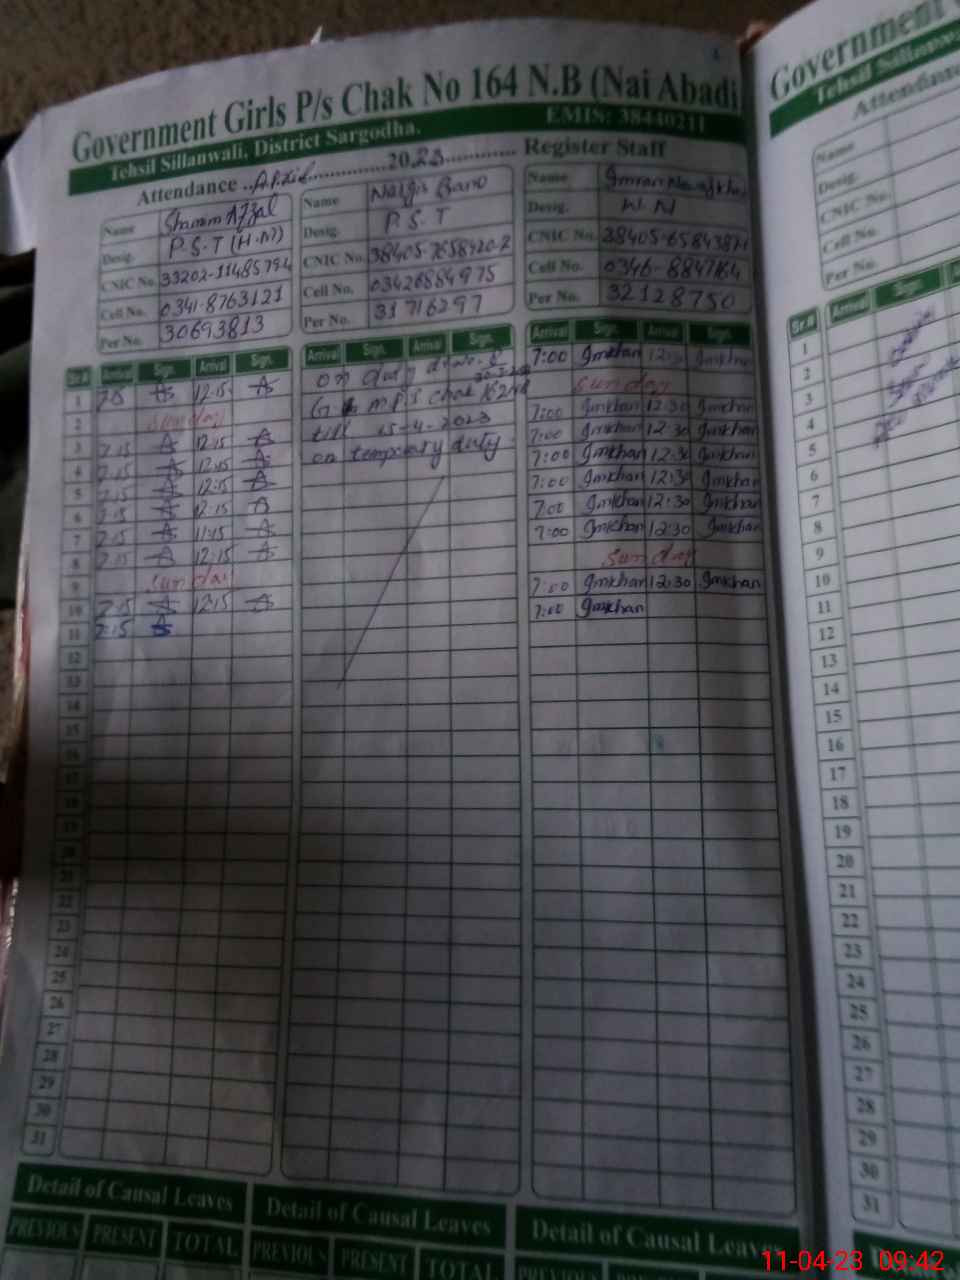 Government Girls P/s Chak No 164 N.B (Nai Abadi)
Tehsil Sillanwali, District Sargodha. EMIS: 38440211
Attendance April 2023 Register Staff
Name Shamim Afzal
Desig. P.S.T (H.M)
CNIC No.
Cell No. 0341-8763121
Per No. 30693813
Name Nargis Bano
Desig. P.S.T
CNIC No.
Cell No. 03426884975
Per No. 31716297
Name Imran
Desig.
CNIC No.
Cell No.
Per No. 32128750
Sr.# Arrival Sign. Arrival Sign. Arrival Sign. Arrival Sign. Arrival Sign. Arrival Sign.
1 12:15 on duty 7:00 Imkhan 12:30 Imkhan
2 Sunday G M P/S chak Sunday
3 7:15 12:15 till 15-4-2023 7:00 Imkhan 12:30 Imkhan
4 7:15 12:15 on temporary duty 7:00 Imkhan 12:30 Imkhan
5 7:15 12:15 7:00 Imkhan 12:30 Imkhan
6 7:15 12:15 7:00 Imkhan 12:30 Imkhan
7 7:15 11:15 7:00 Imkhan 12:30 Imkhan
8 7:15 12:15 7:00 Imkhan 12:30 Imkhan
9 Sunday Sunday
10 7:15 12:15 7:00 Imkhan 12:30 Imkhan
11 7:15 7:00 Imkhan
12
13
14
15
16
17
18
19
20
21
22
23
24
25
26
27
28
29
30
31
Detail of Causal Leaves Detail of Causal Leaves Detail of Causal Leaves
PREVIOUS PRESENT TOTAL PREVIOUS PRESENT TOTAL PREVIOUS PRESENT
Government
Tehsil Sillanwali
Attendance
Name
Desig.
CNIC No.
Cell No.
Per No.
Sr.# Arrival Sign.
1
2
3
4
5
6
7
8
9
10
11
12
13
14
15
16
17
18
19
20
21
22
23
24
25
26
27
28
29
30
31
11-04-23 09:42